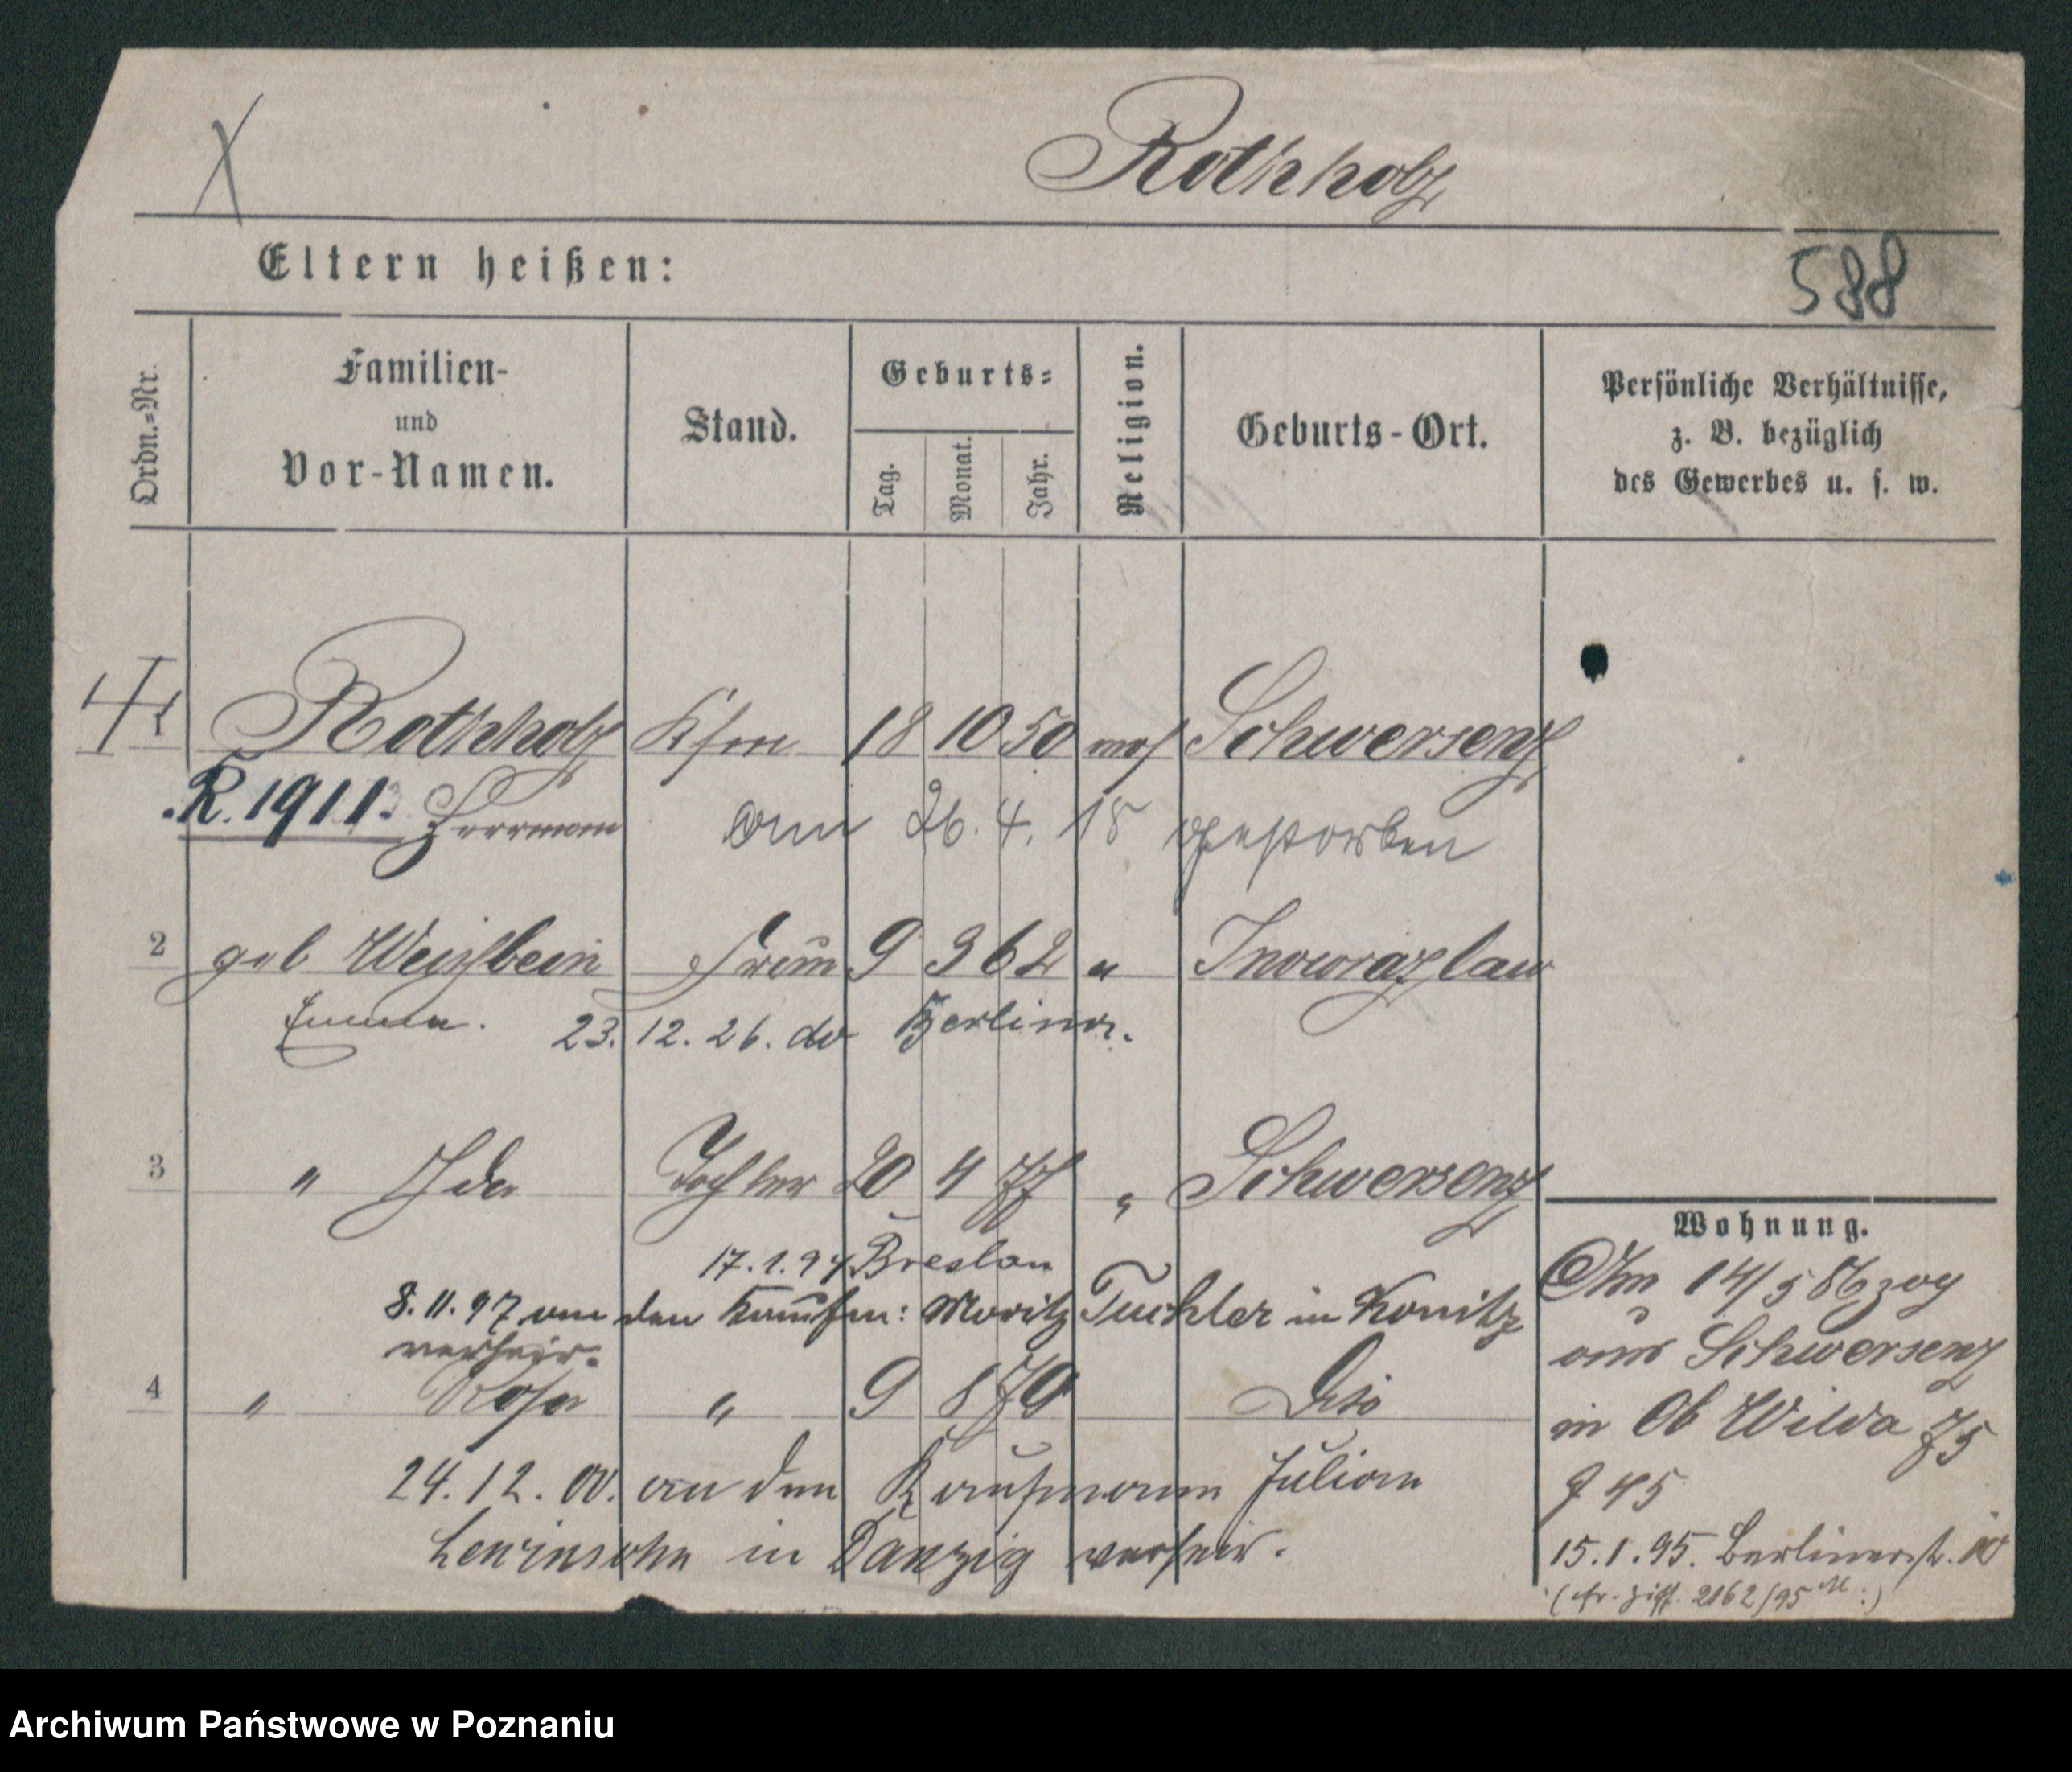 X
Rothholz
Eltern heißen:
588
Ordn.=Nr.
Familien-
und
Vor-Namen.
Stand.
Geburts=
Tag.
Monat.
Jahr.
Religion.
Geburts-Ort.
Persönliche Verhältnisse,
z. B. bezüglich
des Gewerbes u. s. w.
1 Rothholz Kfm 18 10 50 mos Schwersenz
R. 1911. Herrmann am 26. 4. 18 gestorben
2 geb Weissbein Frau 9 3 62 " Inowrazlaw
Emma. 23. 12. 26. do Berlin
3 " Ida Tochter 20 4 77 " Schwersenz
17. 1. 94 Breslau
8. 11. 97 an den Kaufm: Moritz Tuchler in Konitz
verheir.
4 " Rosa " 9 8 79 Dito
24. 12. 00. an den Kaufmann Julian
Lewinsohn in Danzig verheir.
Wohnung.
Am 14/5 86 zog
aus Schwersenz
in Ob Wilda 75
J 45
15. 1. 95. Berlinerstr. 10
2162/95
Archiwum Państwowe w Poznaniu